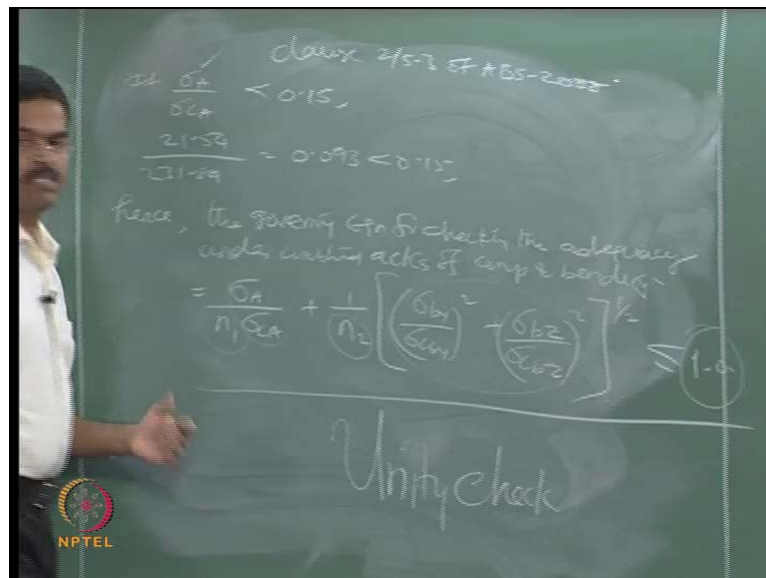 clause 2/5.3 of ABS-
If σA / σCA < 0.15,
21.54 / 231.89 = 0.093 < 0.15,
hence, the governing eqn for checking the adequacy
under combined acts of comp & bending
= σA / n1 σCA + 1 / n2 [ (σby / σcby)² + (σbz / σcbz)² ]^1/2 ≤ 1.0
Unity check
NPTEL